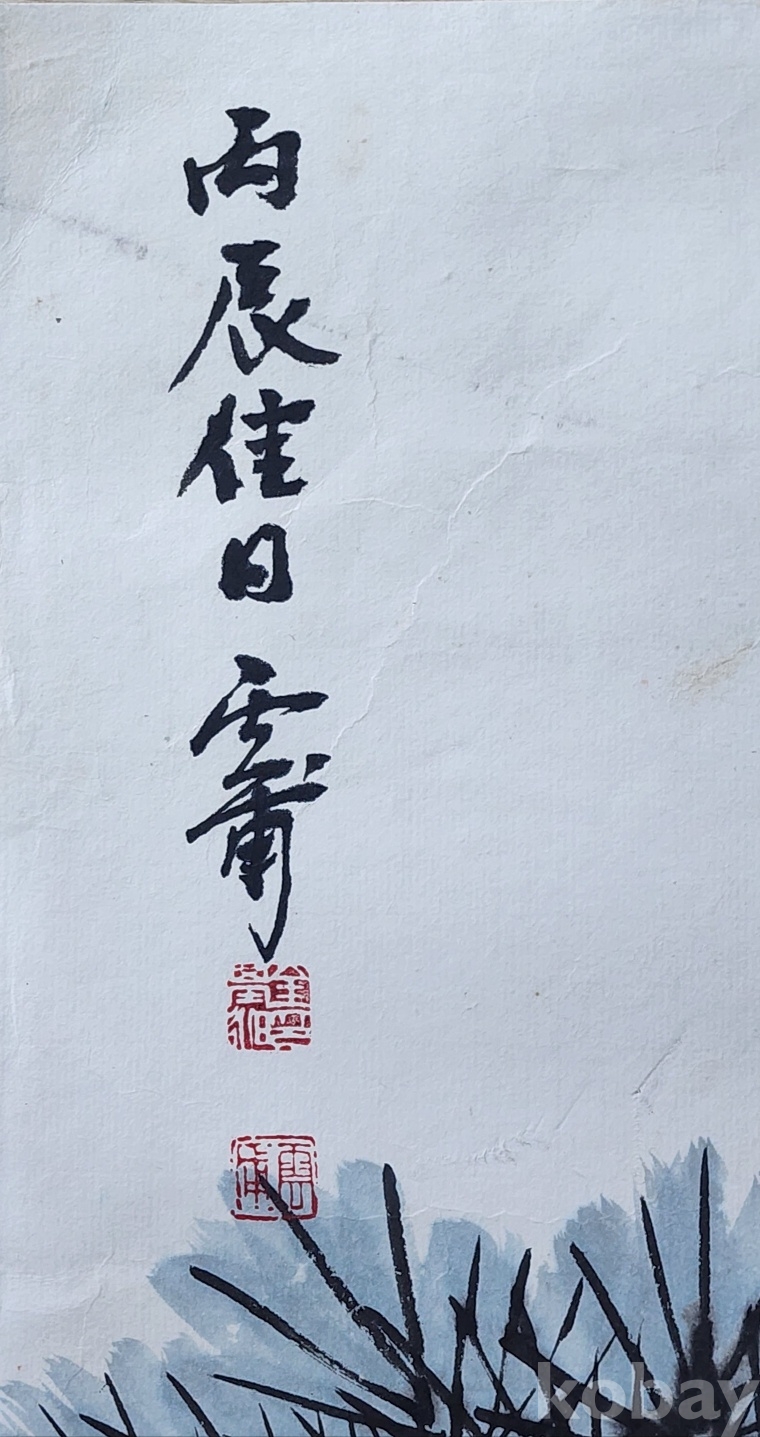 丙辰佳日 雲甫
kobay